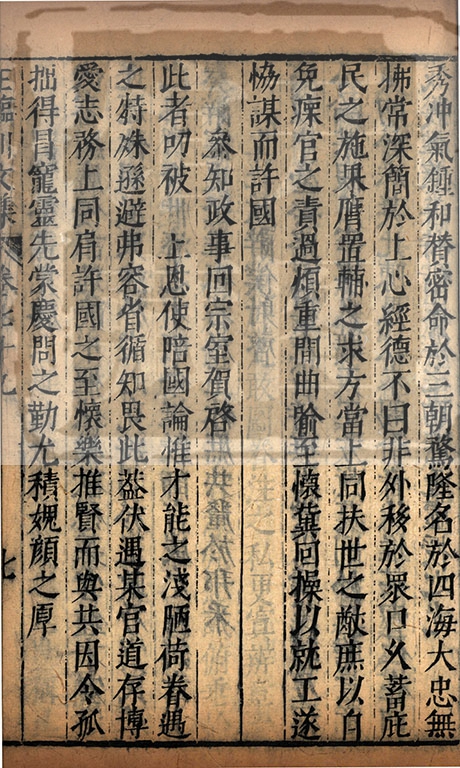 秀冲氣鍾和替密命於三朝驚隆名於四海大忠無
拂常深簡於上心經德不曰非外移於眾口久蓄庇
民之施果膺置輔之求方當上同扶世之猷庶以自
免瘝官之責過煩重問曲喻至懷冀回操以就工遂
恊謀而許國
參知政事回宗室賀啓
此者叨被 上恩使陪國論惟才能之淺陋荷眷遇
之特殊遜避弗容省循知畏此葢伏遇某官道存博
愛志務上同肩許國之至懷樂推賢而與共因令孤
拙得冒寵靈先蒙慶問之勤尤積媿顏之厚
王臨川文集 卷七十九 七